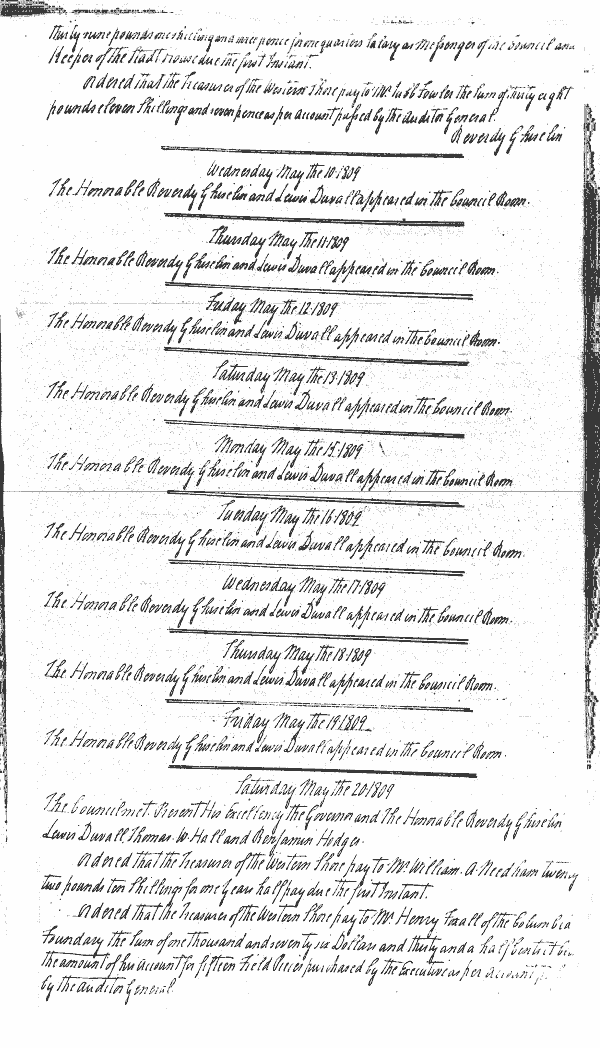 thirty nine pounds one shilling and three pence for one quarters Salary as Messenger of the Council and
Keeper of the Stadt house due the first Instant.
Ordered that the Treasurer of the Western Shore pay to Mr. Jubb Fowler the Sum of thirty eight
pounds eleven Shillings and seven pence as per account passed by the Auditor General.
Reverdy Ghiselin
Wednesday May the 10. 1809
The Honorable Reverdy Ghiselin and Lewis Duvall appeared in the Council Room.
Thursday May the 11. 1809
The Honorable Reverdy Ghiselin and Lewis Duvall appeared in the Council Room.
Friday May the 12. 1809
The Honorable Reverdy Ghiselin and Lewis Duvall appeared in the Council Room.
Saturday May the 13. 1809
The Honorable Reverdy Ghiselin and Lewis Duvall appeared in the Council Room.
Monday May the 15. 1809
The Honorable Reverdy Ghiselin and Lewis Duvall appeared in the Council Room
Tuesday May the 16. 1809
The Honorable Reverdy Ghiselin and Lewis Duvall appeared in the Council Room.
Wednesday May the 17. 1809
The Honorable Reverdy Ghiselin and Lewis Duvall appeared in the Council Room.
Thursday May the 18. 1809
The Honorable Reverdy Ghiselin and Lewis Duvall appeared in the Council Room.
Friday May the 19. 1809
The Honorable Reverdy Ghiselin and Lewis Duvall appeared in the Council Room.
Saturday May the 20. 1809
The Council met. Present His Excellency the Governor and The Honorable Reverdy Ghiselin
Lewis Duvall, Thomas W. Hall and Benjamin Hodges.
Ordered that the Treasurer of the Western Shore pay to Mr. William A. Needham twenty
two pounds ten Shillings for one Years half pay due the first Instant.
Ordered that the Treasurer of the Western Shore pay to Mr. Henry Foxall of the Columbia
Foundary the Sum of one thousand and seventy six Dollars and thirty and a half Cents
the amount of his account for fifteen Field Pieces purchased by the Executive as per Account
by the Auditor General.